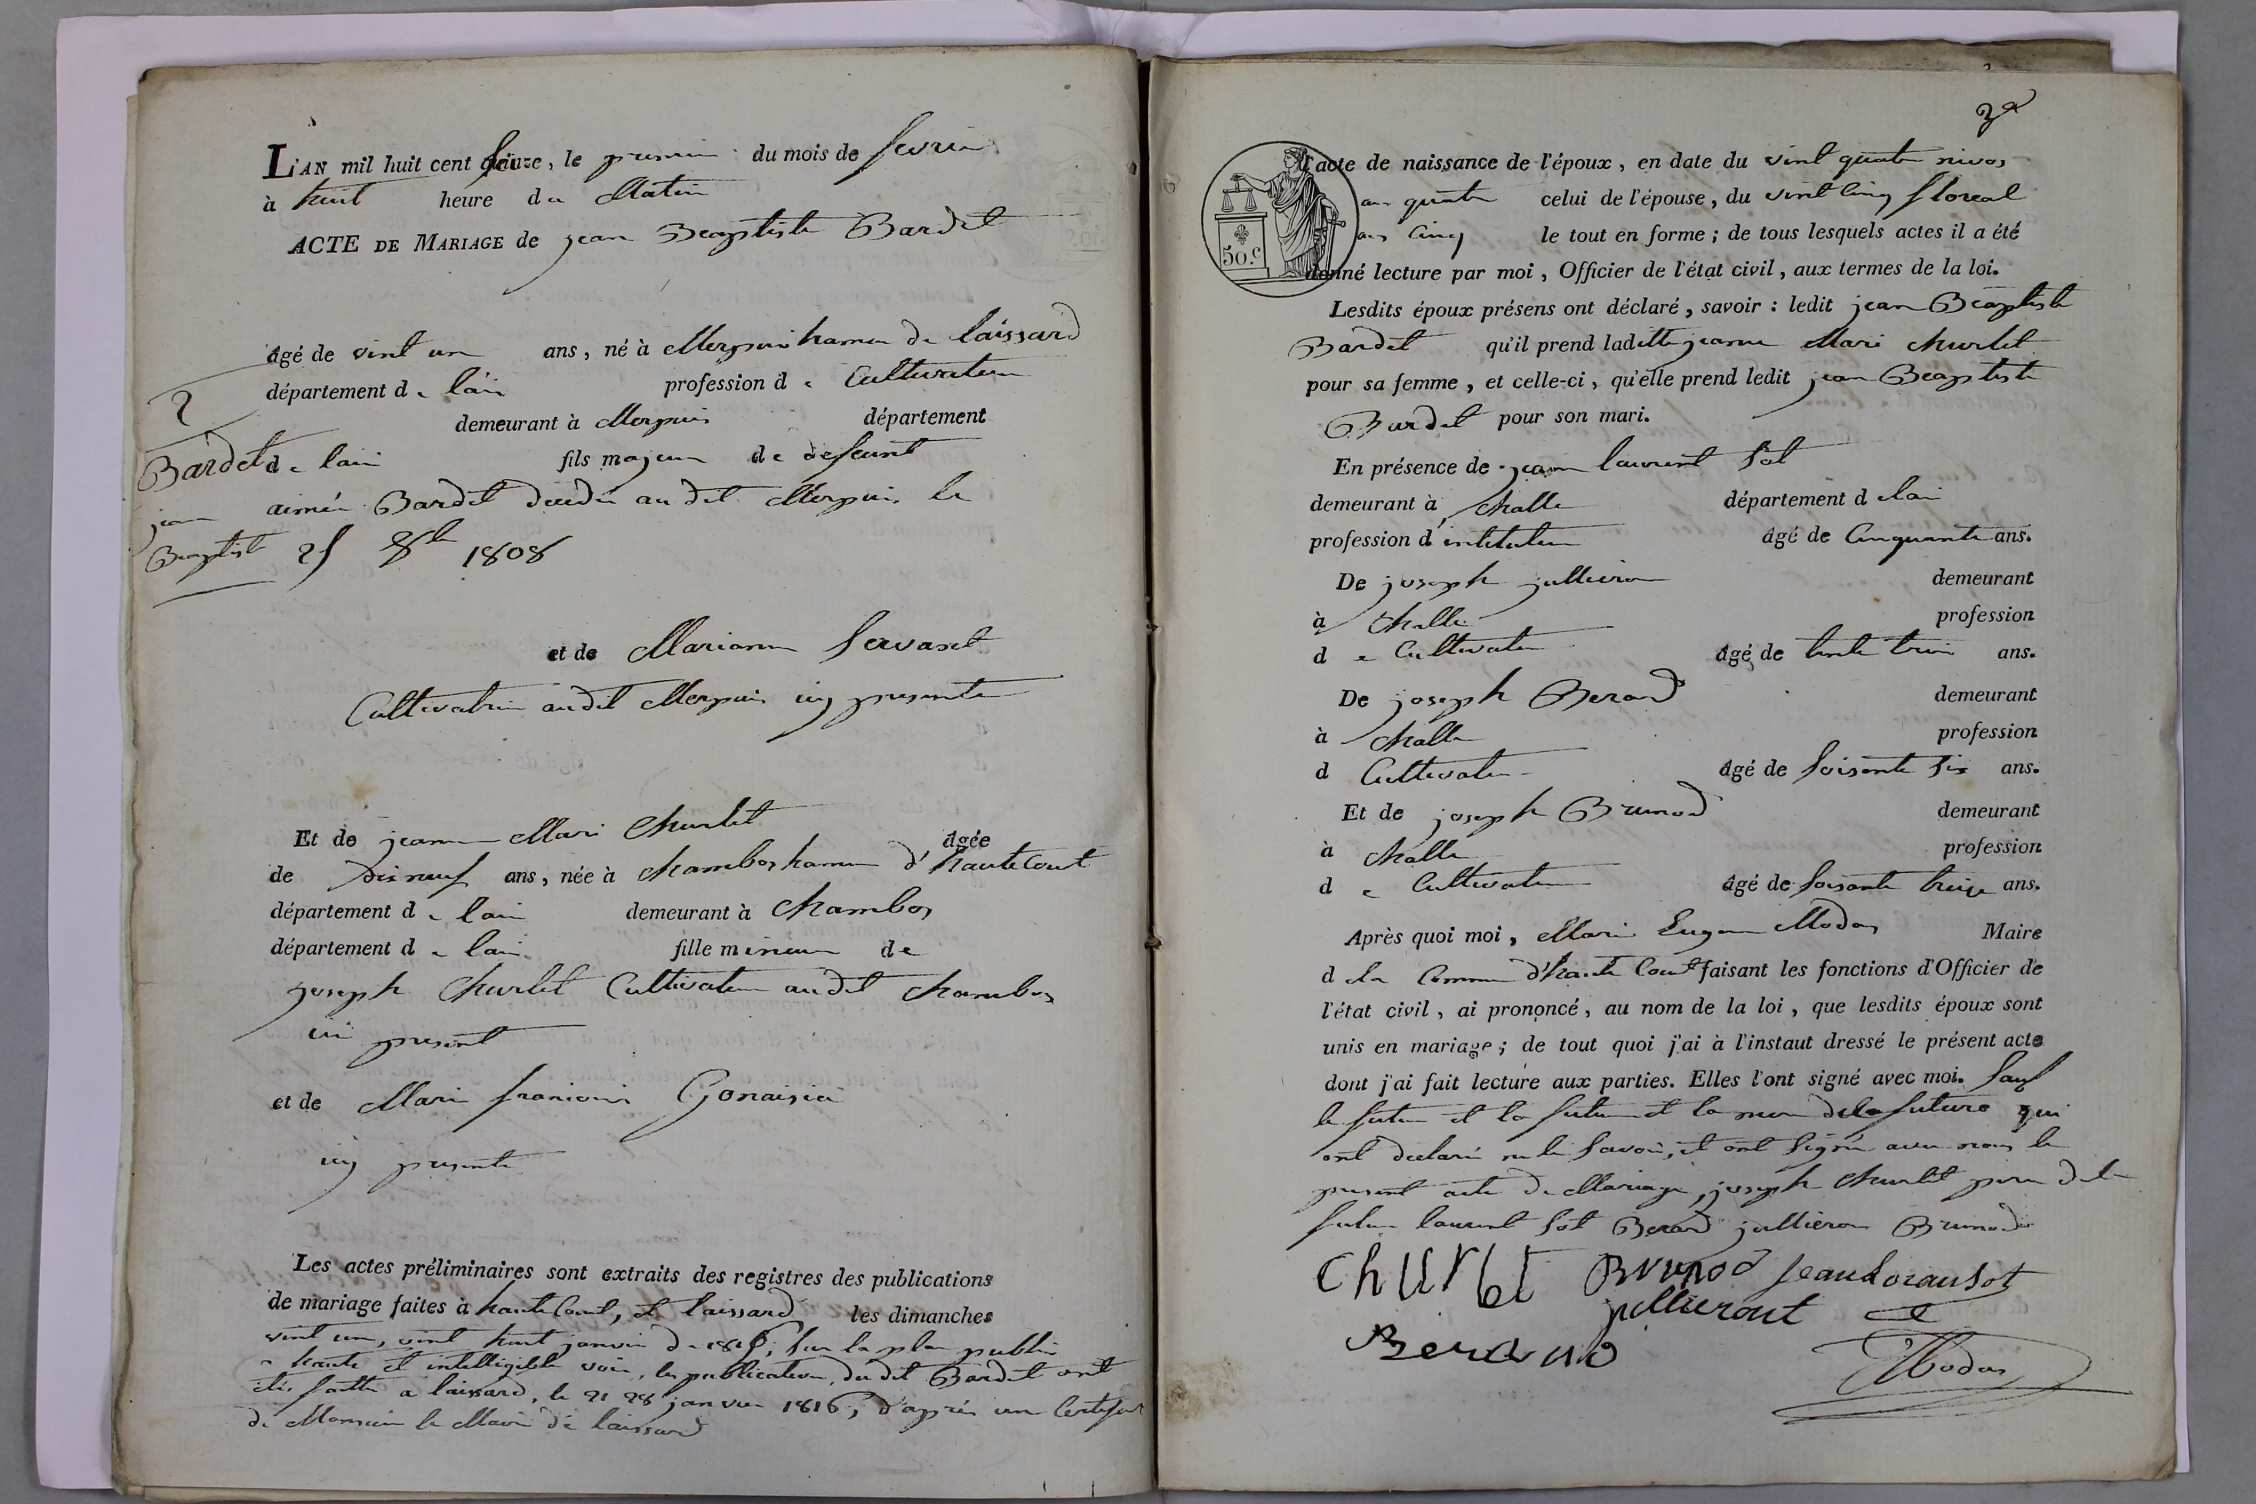 L'AN mil huit cent seize, le premier du mois de fevrier
à huit heure du Matin
ACTE DE MARIAGE de jean Beaptiste Bardet
âgé de vint un ans, né à Merpuis hameu de laissard
département de lain profession de Cultivateur
2
demeurant à Merpuis département
Bardet de lain fils majeur de defeunt
jean aimé Bardet decedé au dit Merpuis le
Beaptist 25 8bre 1808
et de Mariane Servaset
Cultivatrice audit Merpuis icy presente
Et de jeanne Marie Churlet âgée
de dixneuf ans, née à Chambos hameu d'hautecourt
département de lain demeurant à Chambos
département de lain fille mineur de
joseph Churlet Cultivateur audit Chambos
ici present
et de Marie francoise
icy presente
Les actes préliminaires sont extraits des registres des publications
de mariage faites à hautecourt, et laissard les dimanches
vint un, vint huit janvier de 1816, sur la place public
a haute et intelligible voix, les publication du dit Bardet ont
étés faitte a laissard, le 21 28 janvier 1816, d'après un Certificat
de Monsieur le Maire de laissard
3e
l'acte de naissance de l'époux, en date du vint quatre nivos
an quatre celui de l'épouse, du vint cinq floreal
an Cinq le tout en forme; de tous lesquels actes il a été
50.c donné lecture par moi, Officier de l'état civil, aux termes de la loi.
Lesdits époux présens ont déclaré, savoir: ledit jean Beaptiste
Bardet qu'il prend laditte jeanne Marie Churlet
pour sa femme, et celle-ci, qu'elle prend ledit jean Beaptiste
Bardet pour son mari.
En présence de jean laurent Sot
demeurant à Challe département de lain
profession d'instituteur âgé de Cinquante ans.
De joseph jullieron demeurant
à Challe profession
de Cultivateur âgé de trente trois ans.
De joseph Berard demeurant
à Challe profession
d Cultivateur âgé de soisante six ans.
Et de joseph Brunod demeurant
à Challe profession
de Cultivateur âgé de soisante treize ans.
Après quoi moi, Marie Eugene Modas Maire
de la Commune d'hautecourt faisant les fonctions d'Officier de
l'état civil, ai prononcé, au nom de la loi, que lesdits époux sont
unis en mariage; de tout quoi j'ai à l'instaut dressé le présent acte
dont j'ai fait lecture aux parties. Elles l'ont signé avec moi. Sauf
le futur et la future et la mere dela future qui
ont declaré ne le savoir, et ont signé avec nous le
present acte de Mariage, joseph Churlet pere dela
future laurent Sot Berard jullieron Brunod
Churlet Brunod jean Loran Sot
jullieront
Berard
Modas